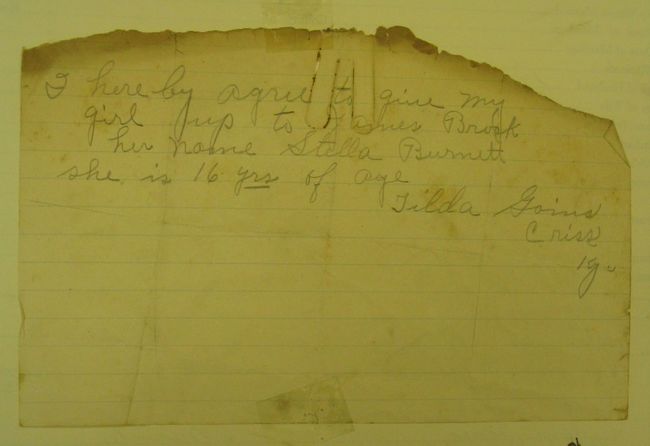 I here-by agree to give my
girl up to James Brock
her name Stella Burnett
she is 16 yrs of age
Tilda Goins
Criss
Ky.